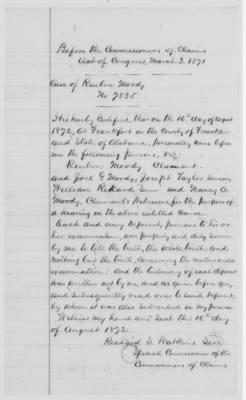 Before the Commissioners of Claims
Act of Congress, March 3, 1871
Case of Reuben Moody
No 7835
I hereby Certified, that on the 16th day of August
1872, at Frankfort in the County of Franklin
and State of Alabama, personally came before
me the following persons, viz:
Reuben Moody Claimant
and Joel G Moody, Joseph Taylor
William Rickard Senr and Nancy A
Moody, Claimant's Witnesses, for the purpose of
a hearing in the above entitled Cause
Each and every deponent, previous to his or
her examination, was properly and duly sworn
by me to tell the truth, the whole truth, and
nothing but the truth, concerning the matter under
examination: and the testimony of each deponent
was written out by me, and as given before me,
and subsequently read over to said deponent,
by whom it was also subscribed in my presence
Witness my hand and Seal this 16th day
of August 1872
D. Watkins
Special Commissioner of the
Commissioners of Claims